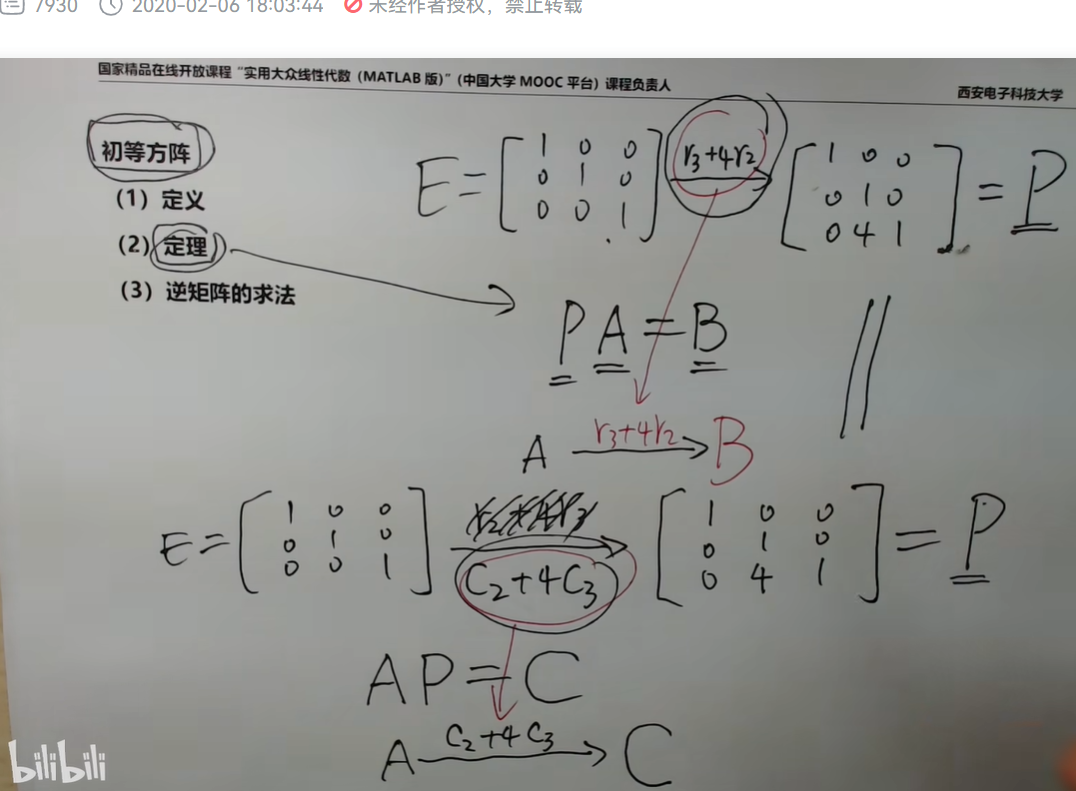 7930 2020-02-06 18:03:44 未经作者授权，禁止转载
国家精品在线开放课程“实用大众线性代数（MATLAB 版）”（中国大学 MOOC 平台）课程负责人
西安电子科技大学
初等方阵
（1）定义
（2）定理
（3）逆矩阵的求法
E = [ 1 0 0 r₃+4r₂ [ 1 0 0
0 1 0 0 1 0 = P
0 0 1 ] 0 4 1 ]
P A = B
A r₃+4r₂ B
E = [ 1 0 0 [ 1 0 0
0 1 0 C₂+4C₃ 0 1 0 = P
0 0 1 ] 0 4 1 ]
A P = C
A C₂+4C₃ C
bilibili